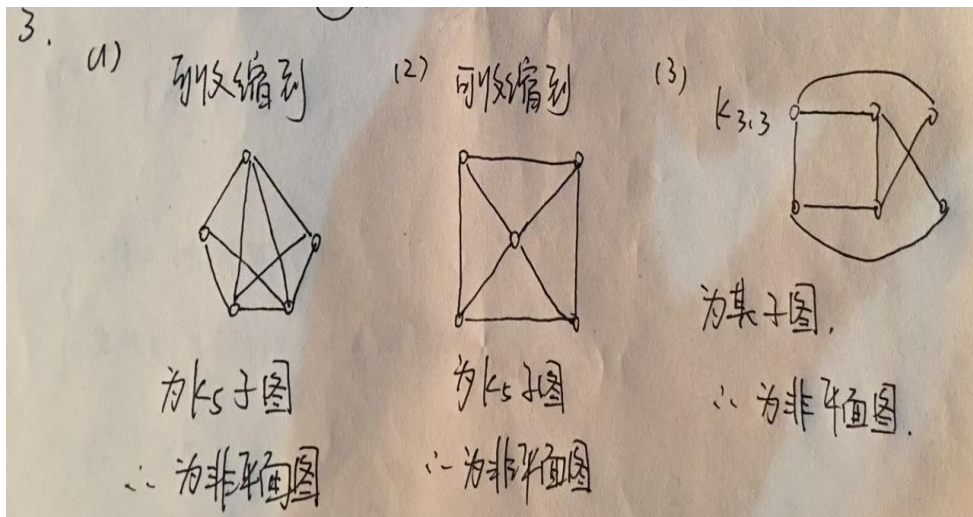 3.
(1) 可收缩到
为K5子图
∴ 为非平面图
(2) 可收缩到
为K5子图
∴ 为非平面图
(3) K3,3
为其子图.
∴ 为非平面图.